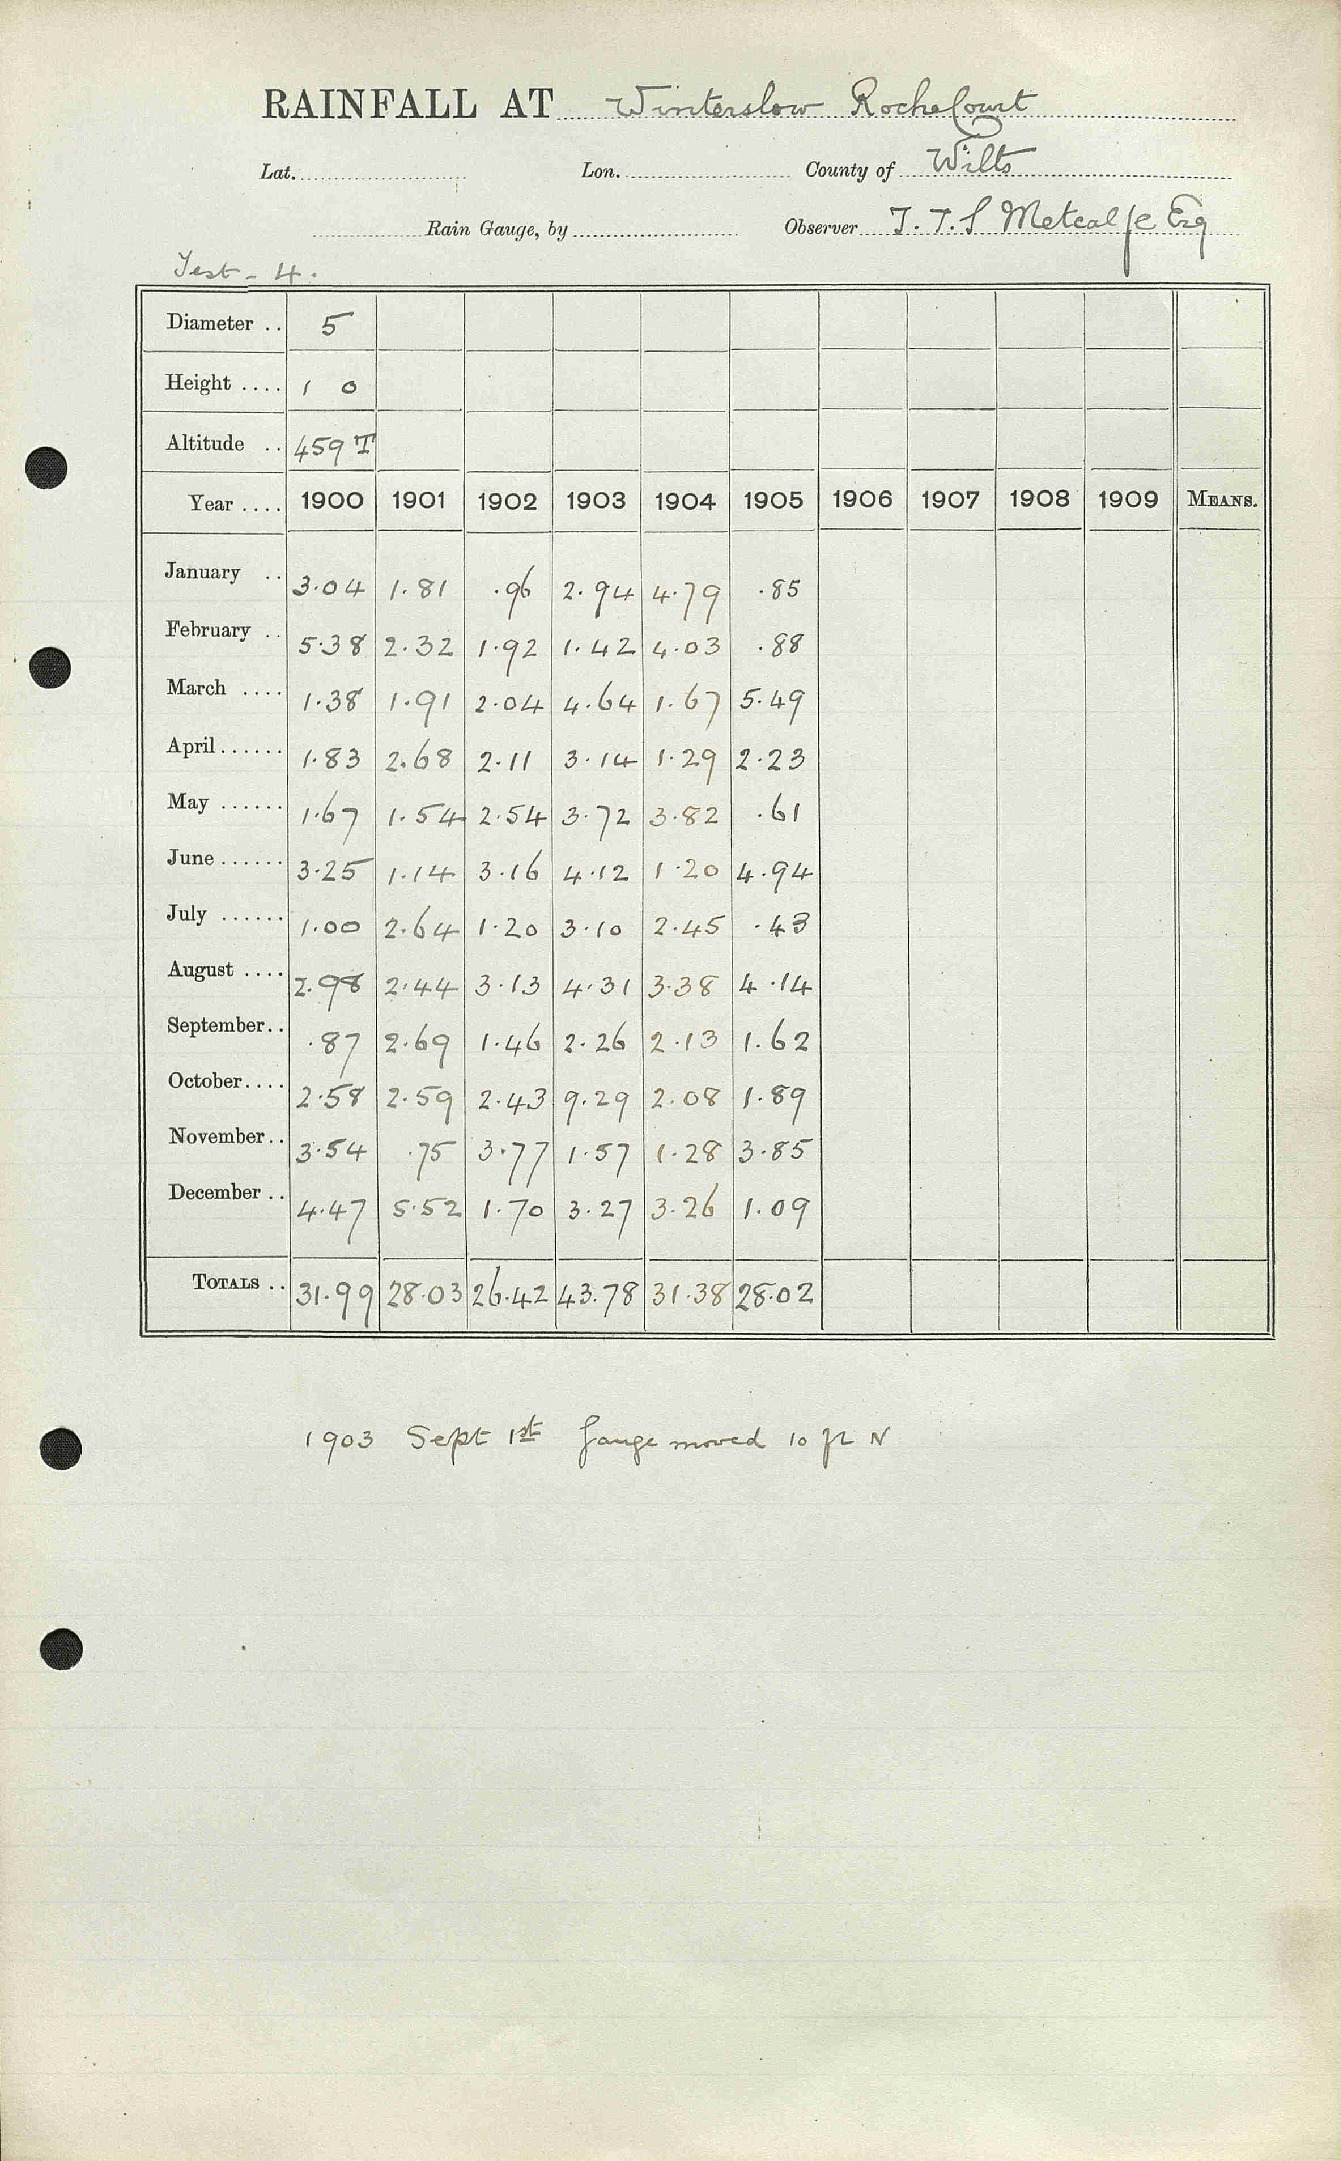 RAINFALL AT Winterslow Roche Court
Lat. Lon. County of Wilts
Rain Gauge, by Observer T. T. S Metcalfe Esq
Test - 4.
Diameter .. 5
Height .... 1 0
Altitude .. 459 T
Year .... 1900 1901 1902 1903 1904 1905 1906 1907 1908 1909 MEANS.
January .. 3.04 1.81 .96 2.94 4.79 .85
February .. 5.38 2.32 1.92 1.42 4.03 .88
March .... 1.38 1.91 2.04 4.64 1.67 5.49
April ...... 1.83 2.68 2.11 3.14 1.29 2.23
May ...... 1.67 1.54 2.54 3.72 3.82 .61
June ...... 3.25 1.14 3.16 4.12 1.20 4.94
July ...... 1.00 2.64 1.20 3.10 2.45 .43
August .... 2.98 2.44 3.13 4.31 3.38 4.14
September.. .87 2.69 1.46 2.26 2.13 1.62
October.... 2.58 2.59 2.43 9.29 2.08 1.89
November.. 3.54 .75 3.77 1.57 1.28 3.85
December .. 4.47 5.52 1.70 3.27 3.26 1.09
TOTALS .. 31.99 28.03 26.42 43.78 31.38 28.02
1903 Sept 1st Gauge moved 10 ft N